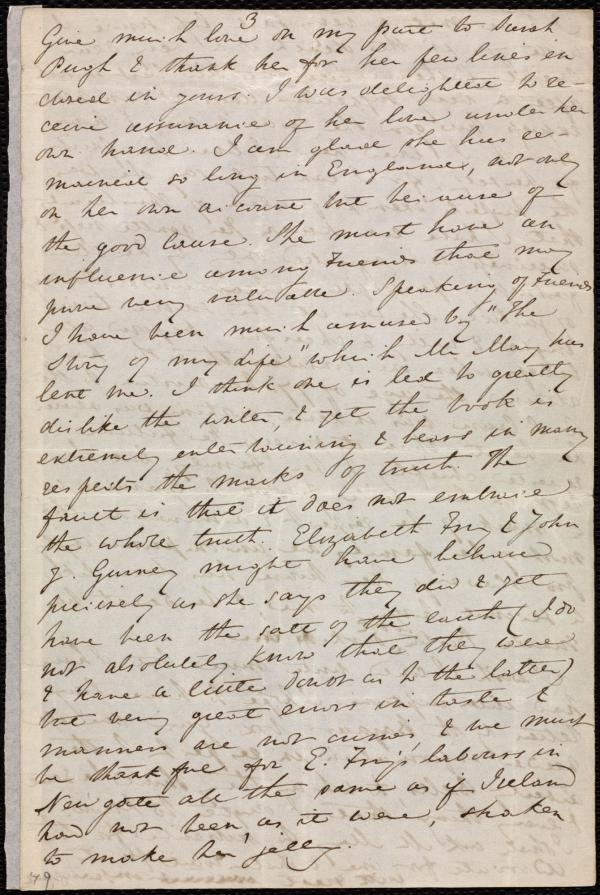 3
Give much love on my part to Sarah
Pugh & thank her for her few lines en
closed in yours. I was delighted to re-
ceive assurance of her love under her
own hand. I am glad she has re-
mained so long in England, not only
on her own account but because of
the good cause. She must have an
influence among Friends that may
prove very valuable. Speaking of Friends
I have been much amused by "The
Story of my Life" which Mr May has
lent me. I think one is led to greatly
dislike the writer, & yet the book is
extremely entertaining & bears in many
respects the marks of truth. The
fault is that it does not embrace
the whole truth. Elizabeth Fry & John
J. Gurney might have behaved
precisely as she says they did & yet
have been the salt of the earth (I do
not absolutely know that they were
& have a little doubt as to the latter)
but very great errors in taste &
manners are not crimes, & we must
be thankful for E. Fry's labours in
Newgate all the same as if Ireland
had not been, as it were, shaken
to make her jelly.
79